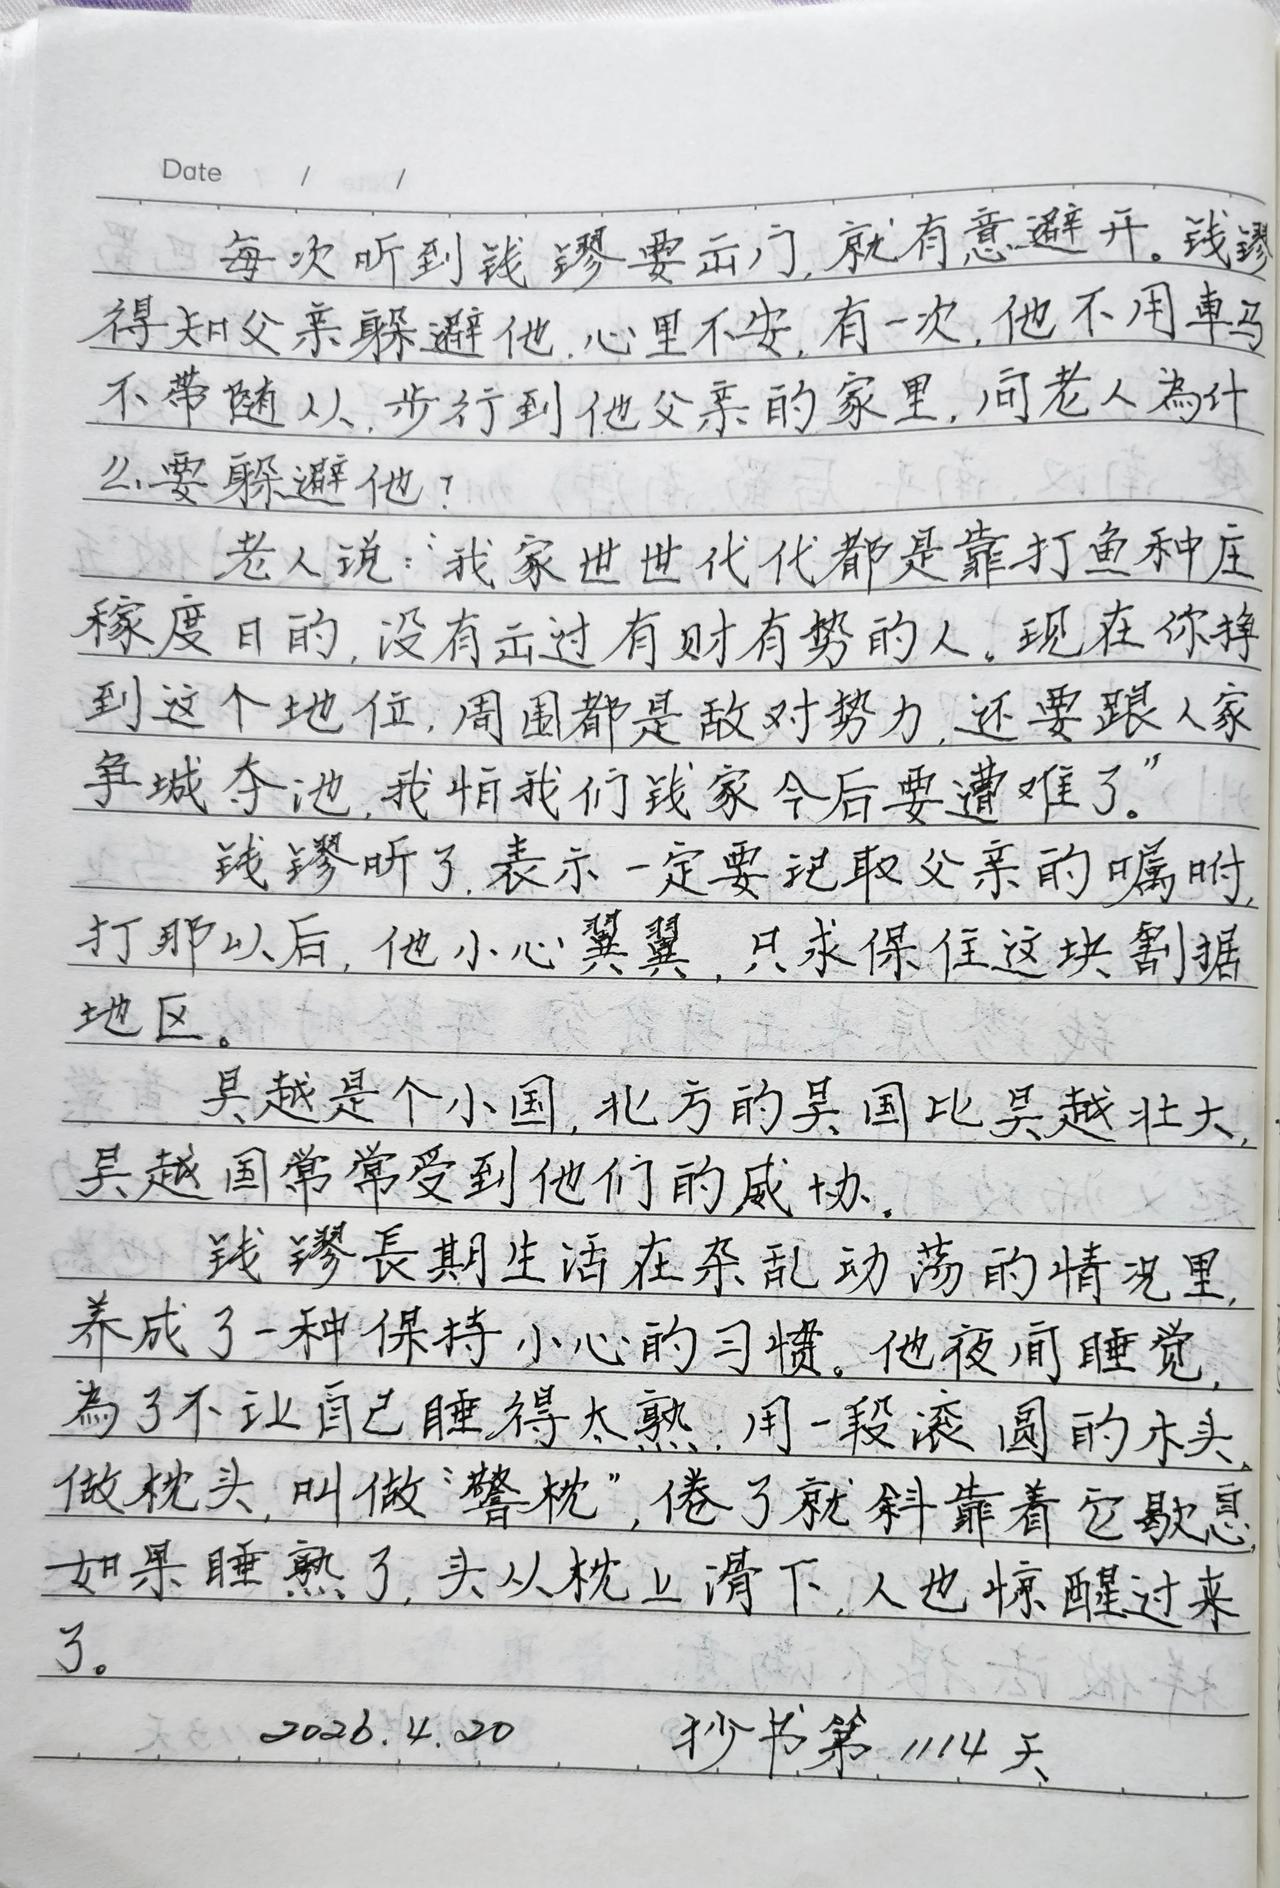 Date / /
每次听到钱镠要出门,就有意避开。钱镠
得知父亲躲避他,心里不安,有一次,他不用車马
不带随从,步行到他父亲的家里,问老人為什
么要躲避他?
老人说:“我家世世代代都是靠打鱼种庄
稼度日的,没有出过有财有势的人。现在你挣
到这个地位,周围都是敌对势力,还要跟人家
争城夺池,我怕我们钱家今后要遭难了。”
钱镠听了,表示一定要记取父亲的嘱咐,
打那以后,他小心翼翼,只求保住这块割据
地区。
吴越是个小国,北方的吴国比吴越壮大,
吴越国常常受到他们的威协。
钱镠長期生活在杂乱动荡的情况里,
养成了一种保持小心的习惯。他夜间睡觉,
為了不让自己睡得太熟,用一段滚圆的木头,
做枕头,叫做“警枕”,倦了就斜靠着它歇息,
如果睡熟了,头从枕上滑下,人也惊醒过来
了。
2026.4.20 抄书第1114天